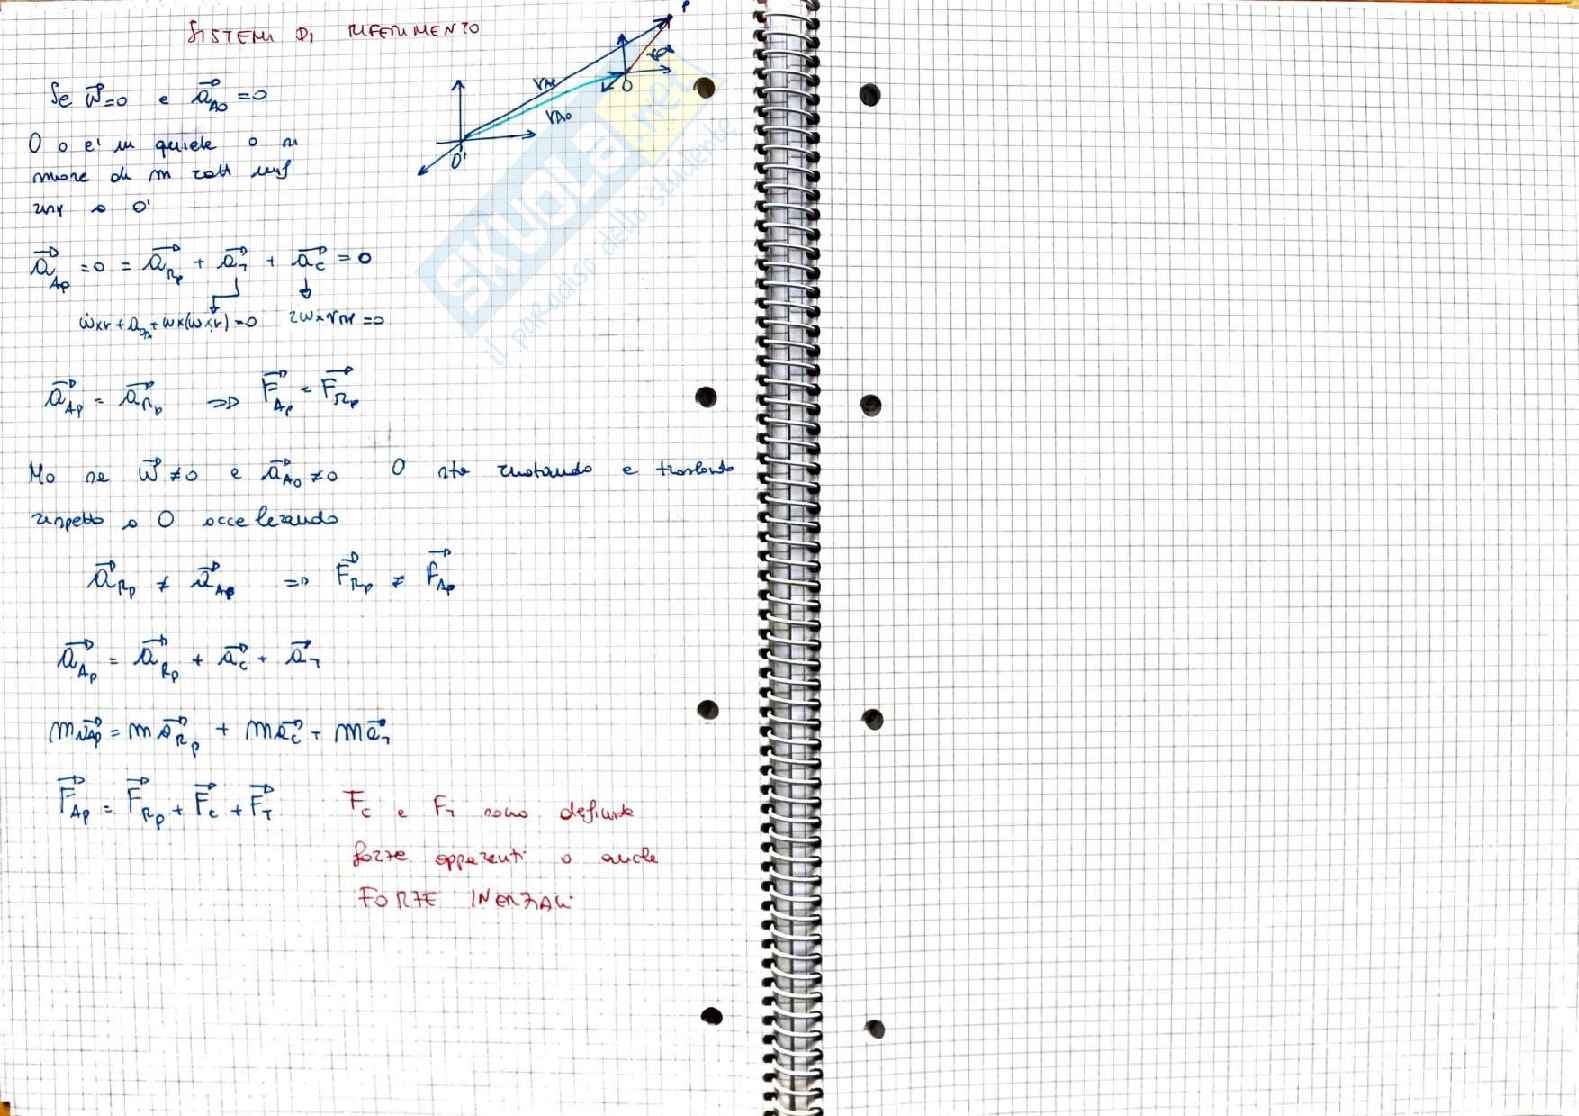 SISTEMI DI RIFERIMENTO
Se w⃗=0 e a⃗_AO=0
O o e' in quiete o si
muove di m rett unif
risp a O'
a⃗_AP = 0 = a⃗_RP + a⃗_T + a⃗_C = 0
ẇxr + a_ + wx(wxr) = 0 2wxv_RP = 0
a⃗_AP = a⃗_RP => F⃗_AP = F⃗_RP
Ma se w⃗≠0 e a⃗_AO≠0 O sta ruotando e traslando
rispetto a O accelerando
a⃗_RP ≠ a⃗_AP => F⃗_RP ≠ F⃗_AP
a⃗_AP = a⃗_RP + a⃗_C + a⃗_T
ma⃗_AP = ma⃗_RP + ma⃗_C + ma⃗_T
F⃗_AP = F⃗_RP + F⃗_C + F⃗_T
F_C e F_T sono definite
forze apparenti o anche
FORZE INERZIALI
P
V_AO
O
O'
SKUOLA.net
il paradiso dello studente